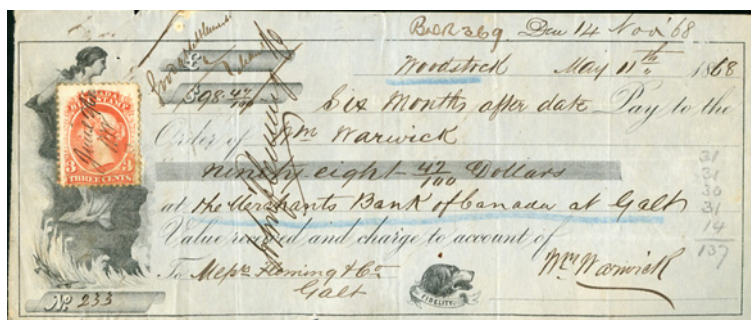 BoDR 369 Due 14 Nov '68
Woodstock May 11th 1868
$98.47/100 Six Months after date Pay to the
Order of Wm Warwick
ninety eight 47/100 Dollars
at the Merchants Bank of Canada at Galt
Value received and charge to account of
To Messrs Fleming & Co
Galt
Wm Warwick
FIDELITY
No 233
THREE CENTS
3 3
31
31
30
31
14
137